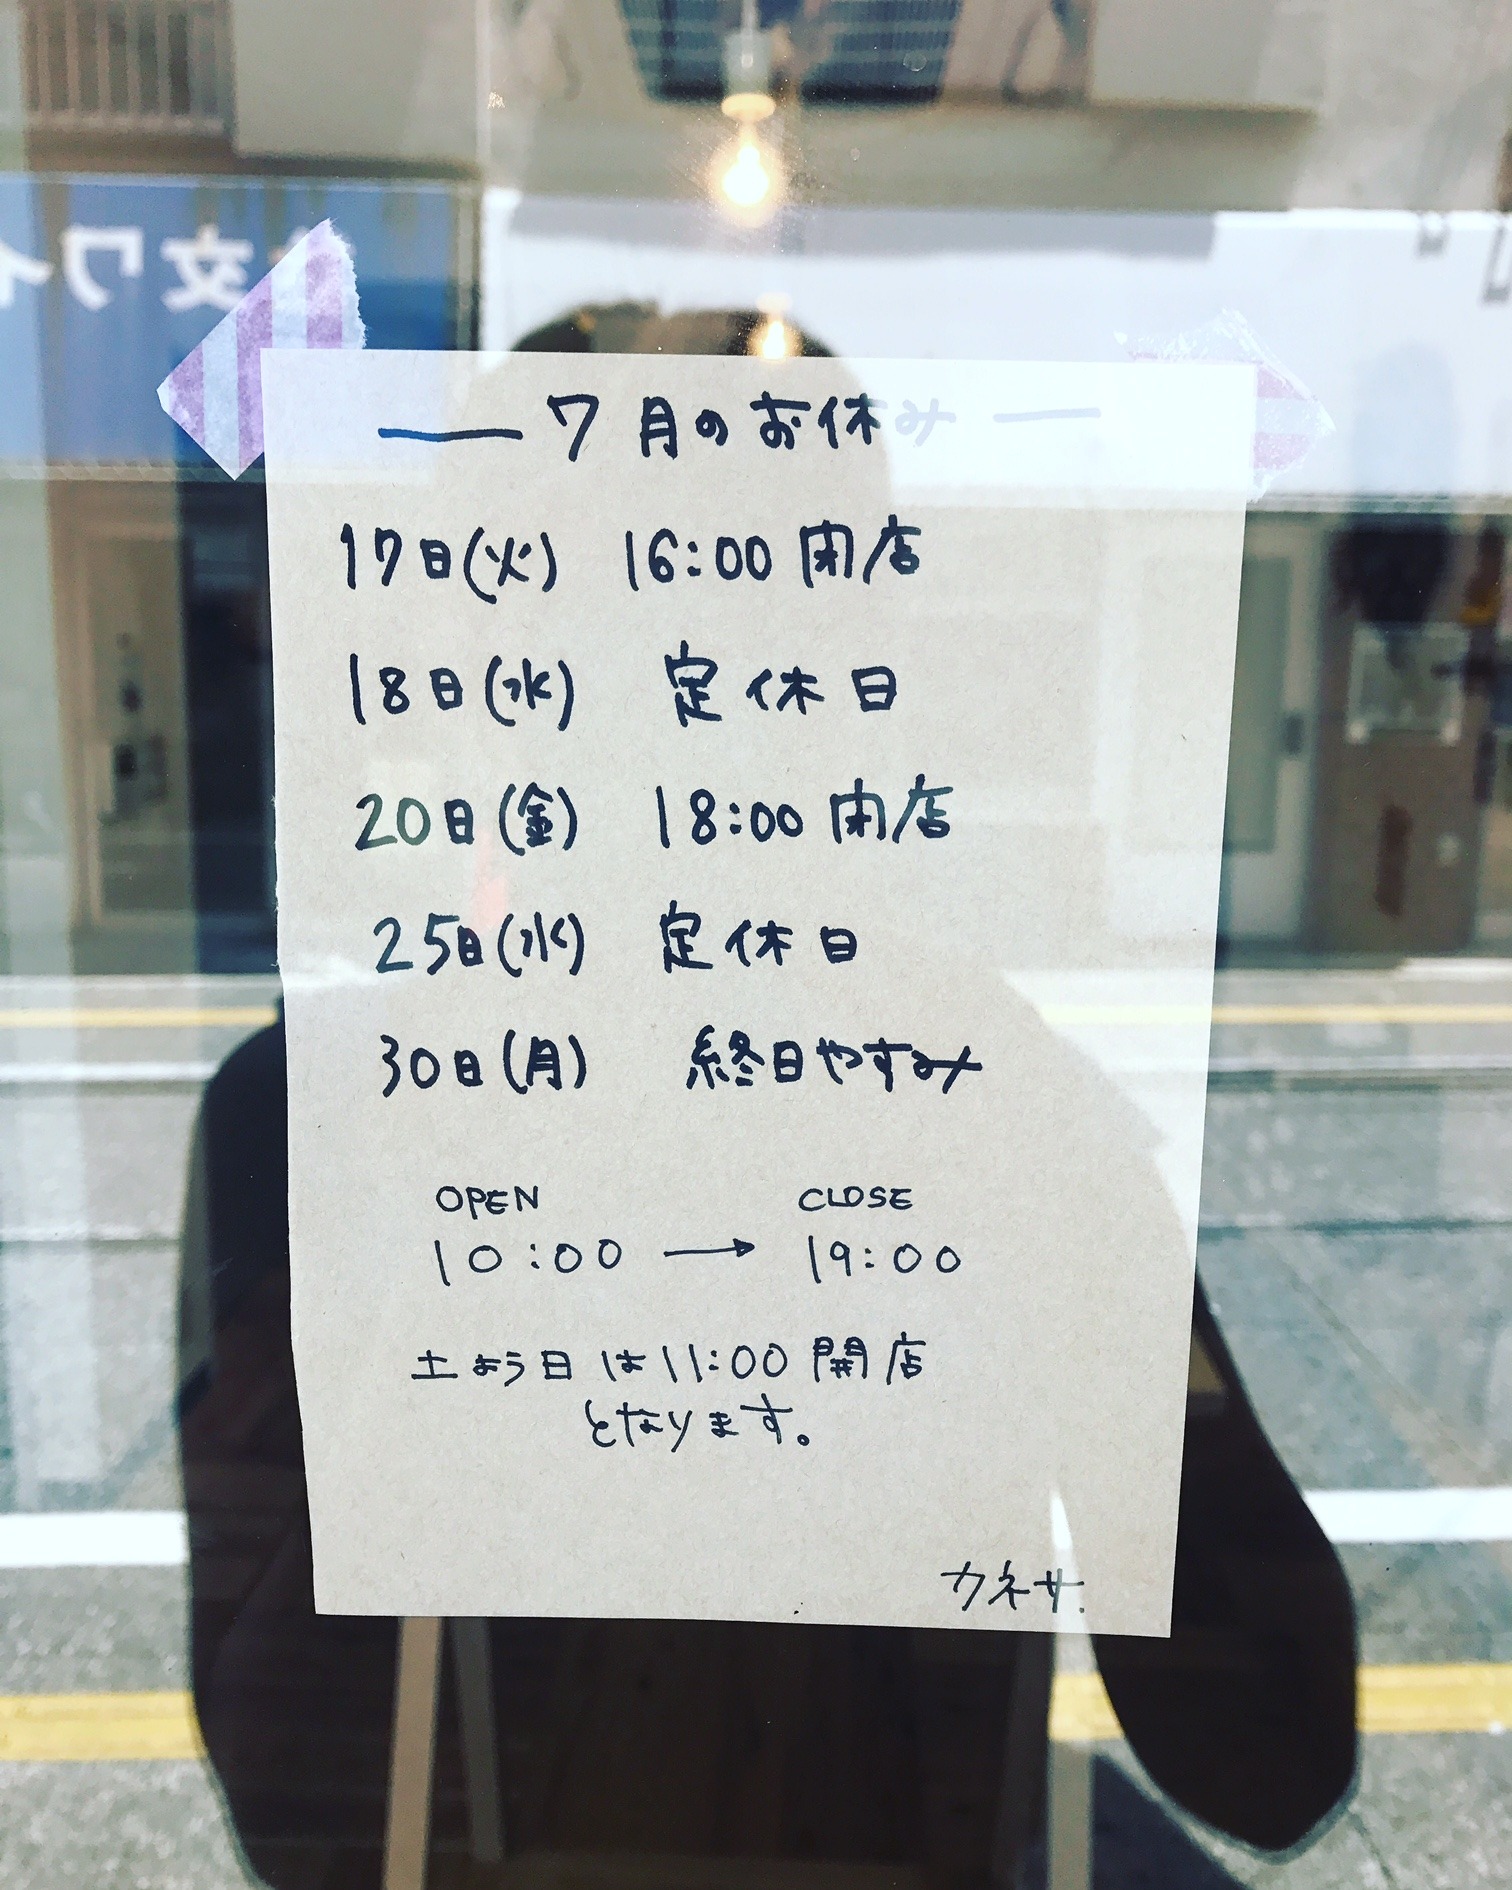 7月のお休み
17日(火) 16:00 閉店
18日(水) 定休日
20日(金) 18:00 閉店
25日(水) 定休日
30日(月) 終日やすみ
OPEN CLOSE
10:00 → 19:00
土よう日は11:00 開店
となります。
カネサ.